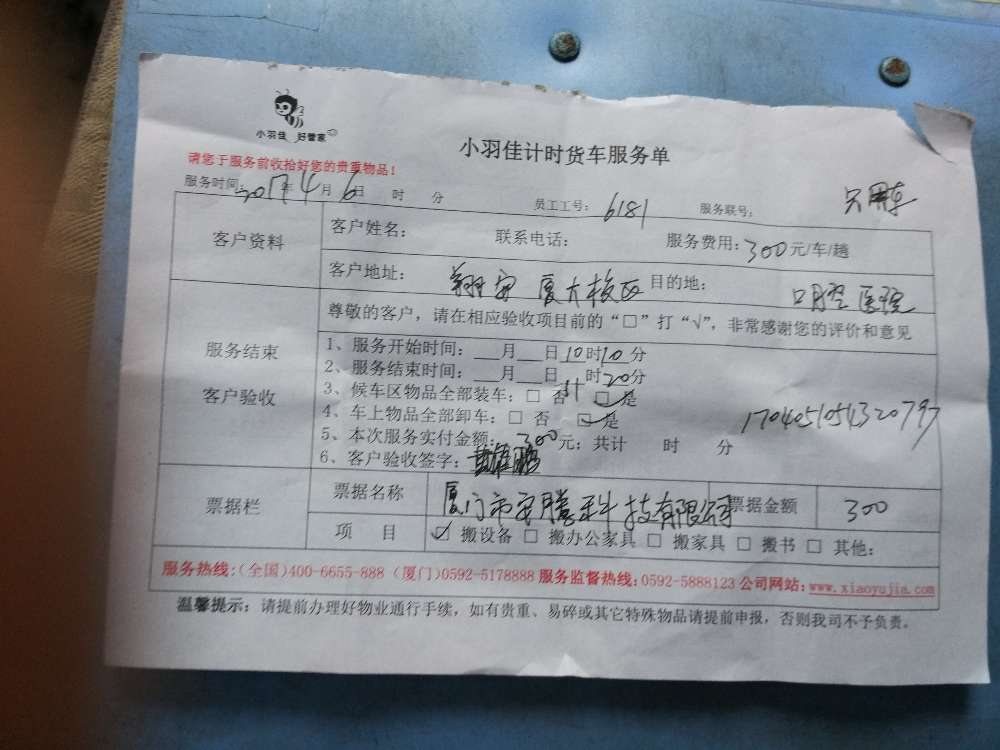 小羽佳 好管家
小羽佳计时货车服务单
请您于服务前收拾好您的贵重物品!
服务时间: 2017年4月6日 时 分 员工工号: 6181 服务联号: 只用车
客户资料
客户姓名: 联系电话: 服务费用:300元/车/趟
客户地址: 翔安 厦大校区 目的地: 口腔医院
服务结束
客户验收
尊敬的客户,请在相应验收项目前的“□”打“√”,非常感谢您的评价和意见
1、服务开始时间:___月___日10时10分
2、服务结束时间:___月___日11时20分
3、候车区物品全部装车:□ 否 ☑是
4、车上物品全部卸车:□ 否 ☑是
1704051054320797
5、本次服务实付金额: 300元;共计 时 分
6、客户验收签字:
票据栏
票据名称 厦门市安腾科技有限公司 票据金额 300
项 目 ☑ 搬设备 □ 搬办公家具 □ 搬家具 □ 搬书 □ 其他:
服务热线:(全国)400-6655-888 (厦门)0592-5178888 服务监督热线:0592-5888123 公司网站:www.xiaoyujia.com
温馨提示:请提前办理好物业通行手续,如有贵重、易碎或其它特殊物品请提前申报,否则我司不予负责。